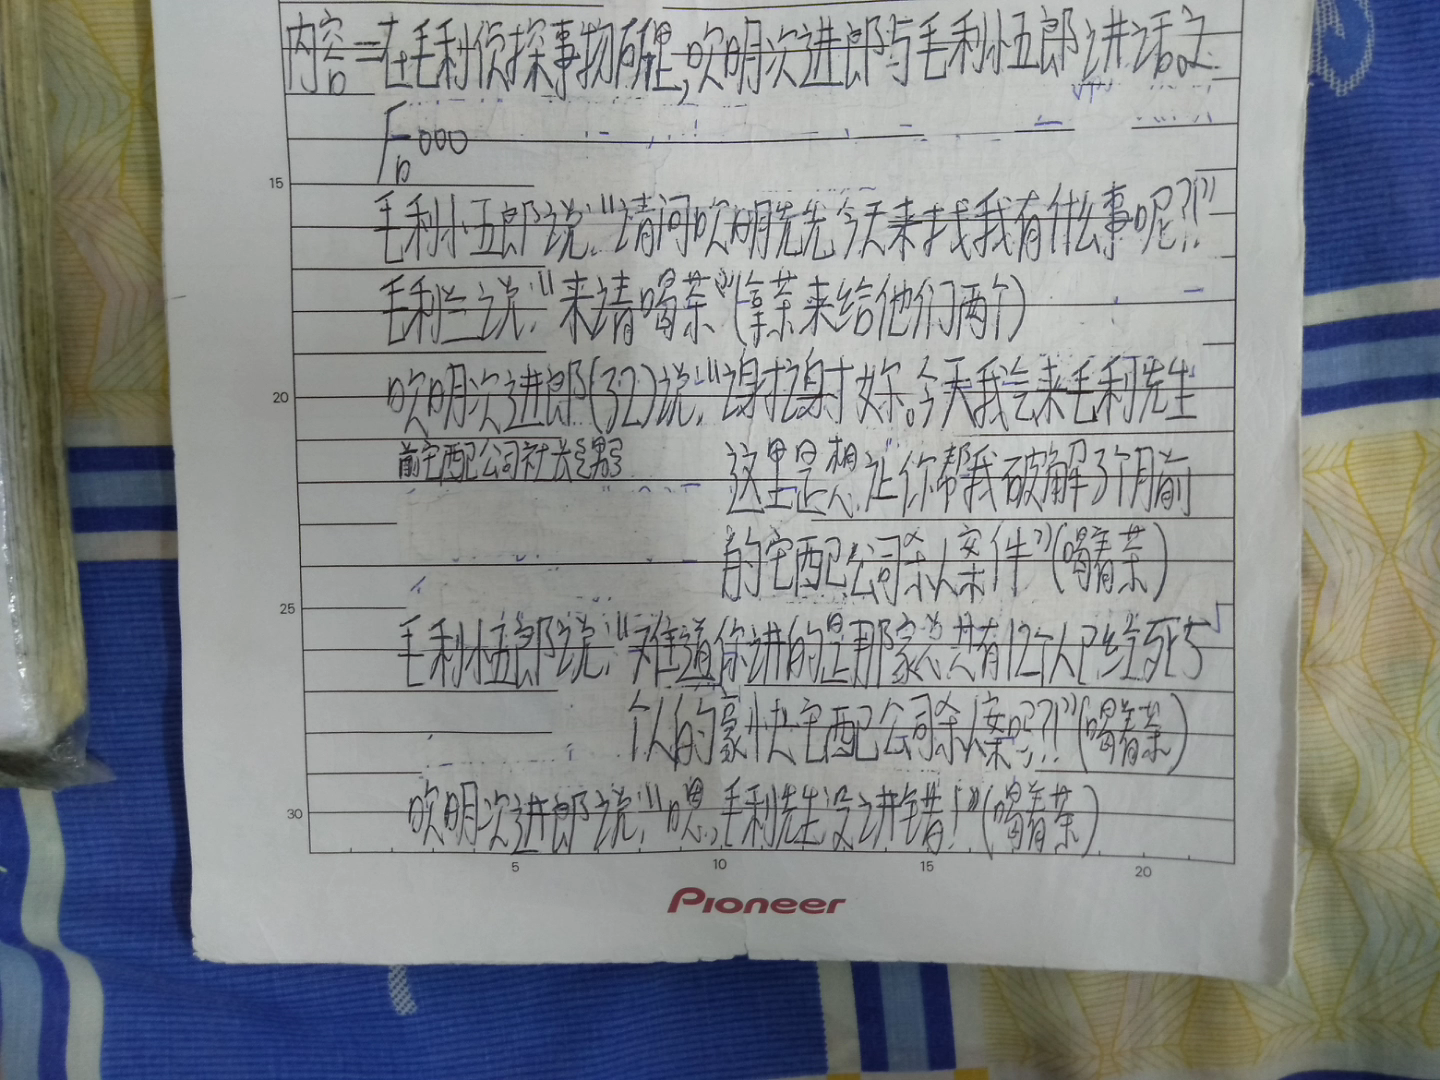 内容=在毛利侦探事物所里,吹明次进郎与毛利小五郎讲话
下。。。
15
毛利小五郎说:"请问吹明先先今天来找我有什么事呢?!"
毛利兰说:"来请喝茶"(拿茶来给他们两个)
20
吹明次进郎(32)说:"谢谢妳。今天我会来毛利先生
前宅配公司社长
这里是想让你帮我破解3个月前
的宅配公司杀人案件"(喝着茶)
25
毛利小五郎说:"难道你讲的是那家总共有12个人已经死5
个人的豪快宅配公司杀人案吗?!"(喝着茶)
30
吹明次进郎说:"嗯,毛利先生没讲错!"(喝着茶)
5 10 15 20
Pioneer